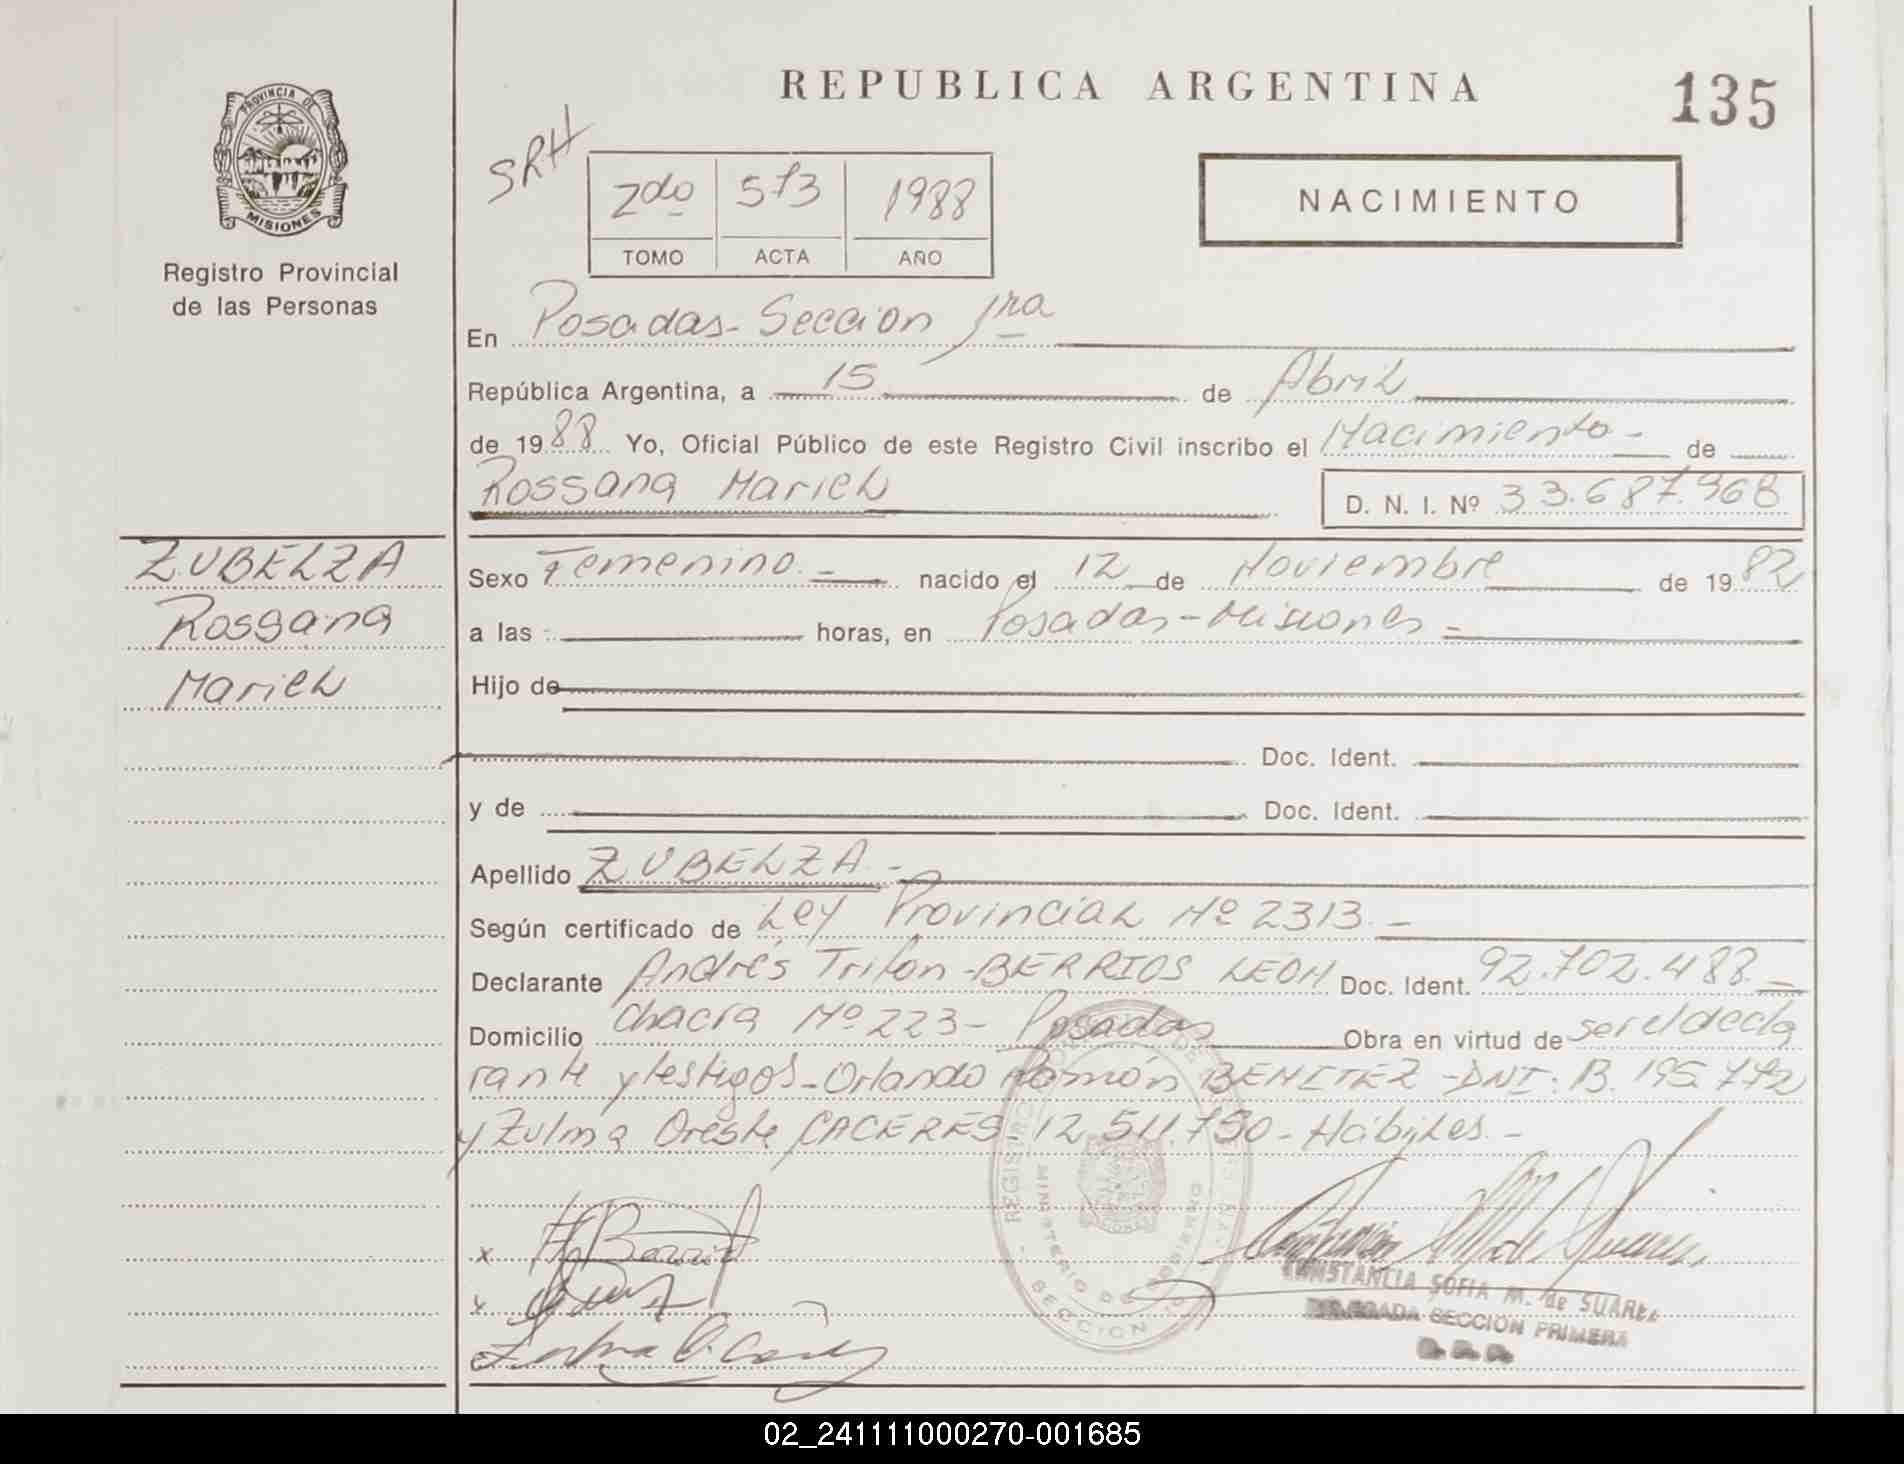 REPUBLICA ARGENTINA
135
PROVINCIA DE
MISIONES
Registro Provincial
de las Personas
SRH
2do 573 1988
TOMO ACTA AÑO
NACIMIENTO
En Posadas - Seccion 1ra
República Argentina, a 15 de Abril
de 1988 Yo, Oficial Público de este Registro Civil inscribo el Nacimiento - de
Rossana Mariel D. N. I. Nº 33.687.968
ZUBELZA
Rossana
Mariel
Sexo Femenino - nacido el 12 de Noviembre de 1982
a las horas, en Posadas - Misiones -
Hijo de
Doc. Ident.
y de Doc. Ident.
Apellido ZUBELZA -
Según certificado de Ley Provincial Nº 2313 -
Declarante Andrés Trifón - BERRIOS LEON Doc. Ident. 92.702.488 -
Domicilio Chacra Nº 223 - Posadas Obra en virtud de ser el decla
rante y testigos - Orlando Ramón BENITEZ - DNI: 13.195.772
y Zulma Oreste CACERES 12.511.750 - Hábiles. -
x
x
CONSTANCIA SOFIA M. de SUAREZ
DELEGADA SECCION PRIMERA
REGISTRO
MINISTERIO DE GOBIERNO
SECCION
02_241111000270-001685